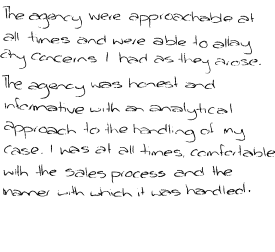 The agency were approachable at
all times and were able to allay
any concerns I had as they arose.
The agency was honest and
informative with an analytical
approach to the handling of my
case. I was at all times, comfortable
with the sales process and the
manner with which it was handled.